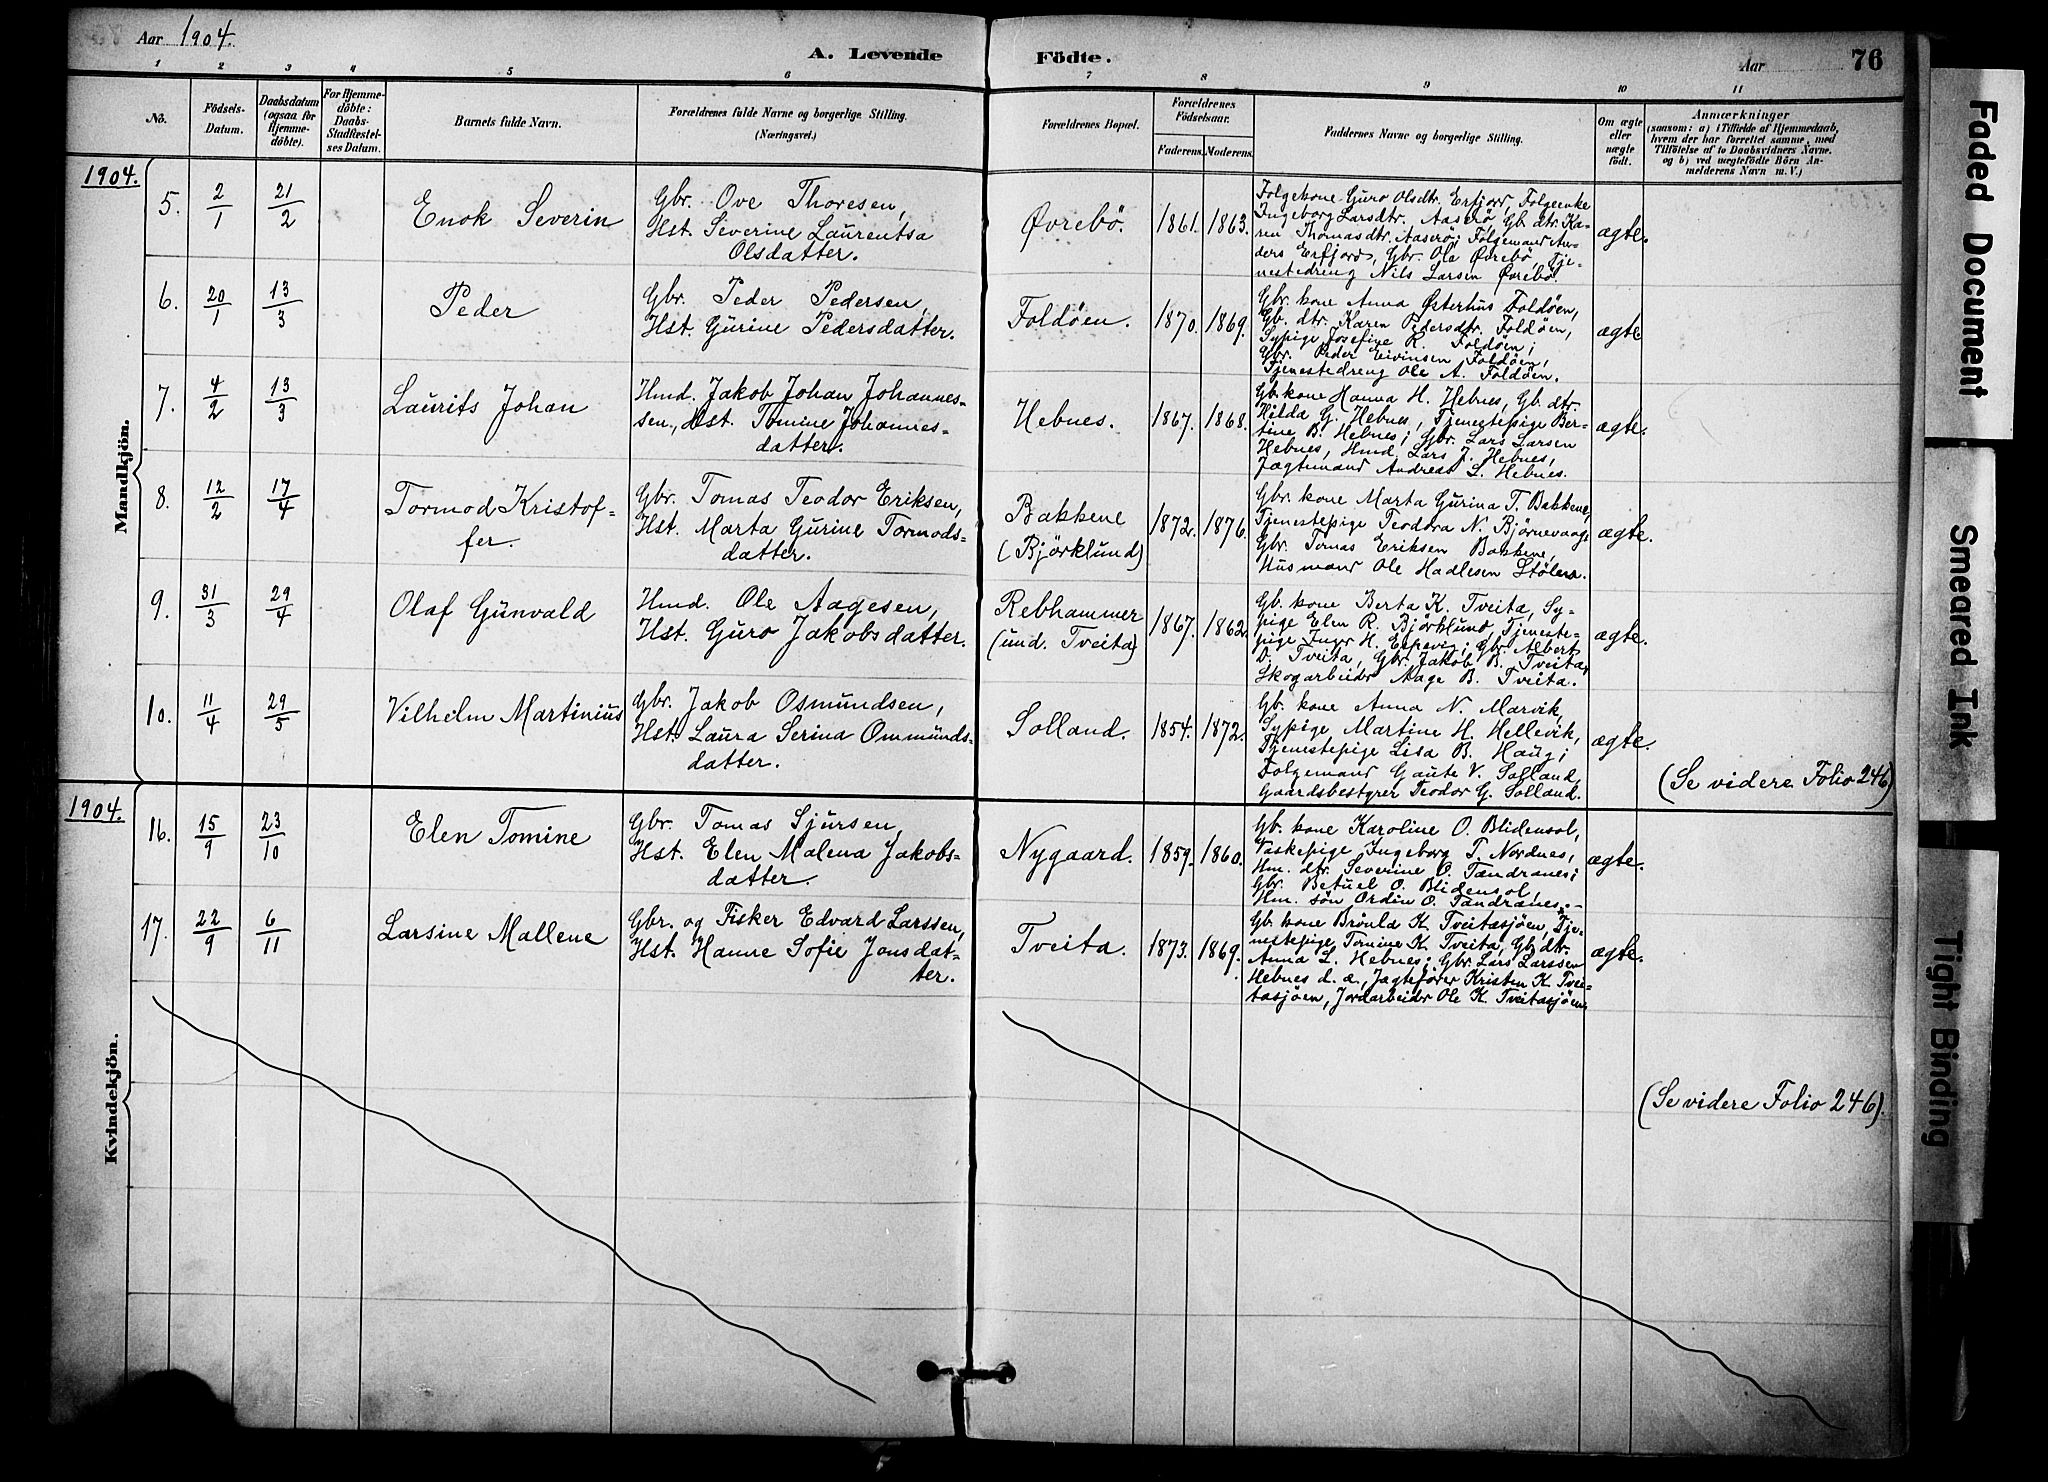 Aar 1904.
A. Levende Födte.
Aar 76
1 2 3 4 5 6 7 8 9 10 11
No.
Födsels-
Datum.
Daabsdatum
(ogsaa for
Hjemme-
döbte).
For Hjemme-
döbte:
Daabs-
Stadfæstel-
ses Datum.
Barnets fulde Navn.
Forældrenes fulde Navne og borgerlige Stilling.
(Næringsvei.)
Forældrenes Bopæl.
Forældrenes
Födselsaar.
Faderens. Moderens.
Faddernes Navne og borgerlige Stilling.
Om ægte
eller
uægte
födt.
Anmærkninger
(saasom: a) i Tilfælde af Hjemmedaab,
hvem der har forrettet samme, med
Tilföielse af to Daabsvidners Navne.
og b) ved uægtefödte Börn An-
melderens Navn m. V.)
1904.
Mandkjön.
5. 2/1 21/2 Enok Severin
Gbr. Ove Thoresen,
Hst. Severine Laurentsa
Olsdatter.
Øvrebö. 1861. 1863.
Folgekone Guro Olsdtr. Erfjord, Folgeenke
Ingeborg Larsdtr. Aaserö, Gb. dtr. Ka-
ren Thomasdtr. Aaserö; Folgemand An-
ders Erfjord, Gbr. Ole Øvrebö, Tje-
nestedreng Nils Larsen Øvrebö.
ægte.
6. 20/1 13/3 Peder
Gbr. Peder Pedersen,
Hst. Gurine Pedersdatter.
Foldöen. 1870. 1869.
Gbr. kone Anna Østerhus Foldöen,
Gb. dtr. Karen Pedersdtr. Foldöen,
Sypige Josefine R. Foldöen;
Gbr. Peder Eivinsen Foldöen,
Tjenestedreng Ole A. Foldöen.
ægte
7. 4/2 13/3 Laurits Johan
Hmd. Jakob Johan Johannes-
sen, Hst. Tomine Johannes-
datter.
Hebnes. 1867. 1868.
Gb. kone Hanna H. Hebnes, Gb. dtr.
Hilda G. Hebnes, Tjenestepige Ber-
tine B. Hebnes; Gbr. Lars Larsen
Hebnes, Hmd. Lars J. Hebnes,
Jagtmand Andreas L. Hebnes.
ægte.
8. 12/2 17/4 Tormod Kristof-
fer.
Gbr. Tomas Teodor Eriksen,
Hst. Marta Gurine Tormods-
datter.
Bakkene
(Björklund)
1872. 1876.
Gbr. kone Marta Gurina T. Bakkene,
Tjenestepige Teodora N. Bjørnevaag
Gbr. Tomas Eriksen Bakkene,
Husmand Ole Hadlesen Stölen.
ægte.
9. 31/3 29/4 Olaf Gunvald
Hmd. Ole Aagesen,
Hst. Guro Jakobsdatter.
Rebhammer
(und. Tveita)
1867. 1862.
Gb. kone Berta K. Tveita, Sy-
pige Elen R. Björklund, Tjeneste-
pige Inger H. Espevig; Gbr. Albert
O. Tveita, Gbr. Jakob B. Tveita,
Skogarbeider Aage B. Tveita.
ægte.
10. 11/4 29/5 Vilhelm Martinius
Gbr. Jakob Osmundsen,
Hst. Laura Serina Ommunds-
datter.
Solland. 1854. 1872.
Gb. kone Anna N. Marvik,
Sypige, Martine H. Hellevik,
Tjenestepige Lisa B. Haug;
Folgemand Gaute V. Solland,
Gaardsbestyrer Teodor G. Solland.
ægte.
(Se videre Folio 246)
1904.
Kvindekjön.
16. 15/9 23/10 Elen Tomine
Gbr. Tomas Sjursen,
Hst. Elen Malena Jakobs-
datter.
Nygaard. 1859. 1860.
Gb. kone Karoline O. Blidensol,
Vaskepige Ingeborg T. Nordnes,
Hm. dtr. Severine O. Tandranes;
Gbr. Betuel O. Blidensol,
Hm. søn Ordin O. Tandranes.-
ægte.
17. 22/9 6/11 Larsine Mallene
Gbr. og Fisker Edvard Larssen,
Hst. Hanne Sofie Jonsdat-
ter.
Tveita. 1873. 1869.
Gb. kone Brönla K. Tveitasjöen, Tje-
nestepige Tomine K. Tveita, Gb. dtr.
Anna L. Hebnes; Gbr. Lars Larssen
Hebnes d. æ., Jagtefører Kristen K. Tvei-
tasjöen, Jordarbeider Ole K. Tveitasjöen.
ægte.
(Se videre Folio 246).
Faded Document
Smeared Ink
Tight Binding